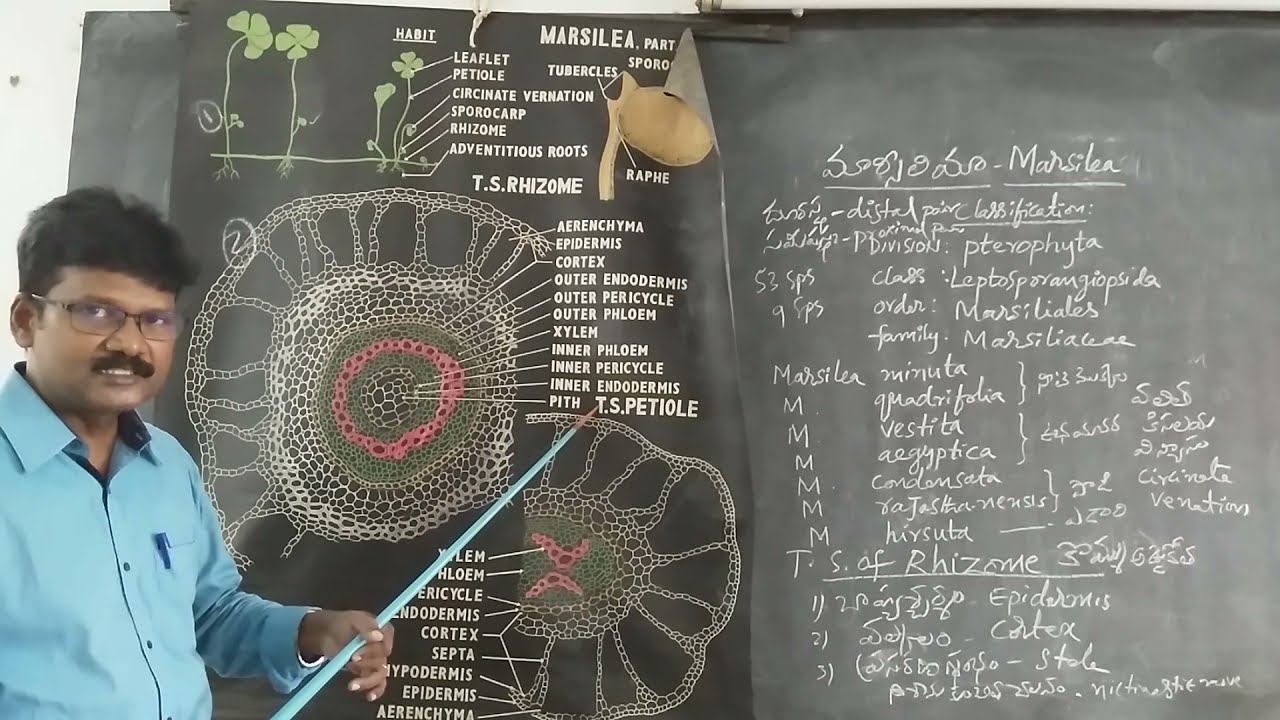 HABIT
MARSILEA, PART
LEAFLET
PETIOLE
CIRCINATE VERNATION
SPOROCARP
RHIZOME
ADVENTITIOUS ROOTS
TUBERCLES
SPORO
RAPHE
1
T.S.RHIZOME
2
AERENCHYMA
EPIDERMIS
CORTEX
OUTER ENDODERMIS
OUTER PERICYCLE
OUTER PHLOEM
XYLEM
INNER PHLOEM
INNER PERICYCLE
INNER ENDODERMIS
PITH
T.S.PETIOLE
XYLEM
PHLOEM
PERICYCLE
ENDODERMIS
CORTEX
SEPTA
HYPODERMIS
EPIDERMIS
AERENCHYMA
మార్సీలియా - Marsilea
- distal pair Classification:
- Proximal pair
DIVISION: pterophyta
53 sps class : Leptosporangiopsida
9 sps order: Marsiliales
family. Marsiliaceae
Marsilea minuta
M. quadrifolia
M. vestita
M aegyptica
M. condensata
M rajasthanensis
M hirsuta
వలిత
కిసలయ
విన్యాసం
circinate
venation
T.S. of Rhizome కొమ్ము అడ్డుకోత
1) బాహ్యచర్మం - Epidermis
2) వల్కలం - Cortex
3) ప్రసరణ స్తంభం - Stele